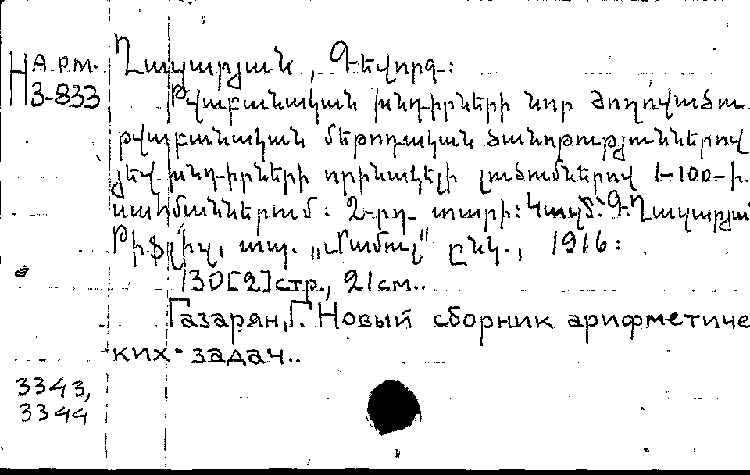 Арм.
Н З-833
Ղազարյան, Գեվորգ:
Թվաբանական խնդիրների նոր ժողովածու
թվաբանական մեթոդական ծանոթություններով
յեվ խնդիրների որինակելի լուծումներով 1-100-ի
սահմաններում: 2-րդ տարի: Կազմ. Գ. Ղազարյան
Թիֆլիզ, տպ. „Մամուլ“ ընկ., 1916:
130[2]стр., 21см..
Газарян, Г. Новый сборник арифметичес
ких задач..
3343,
3344